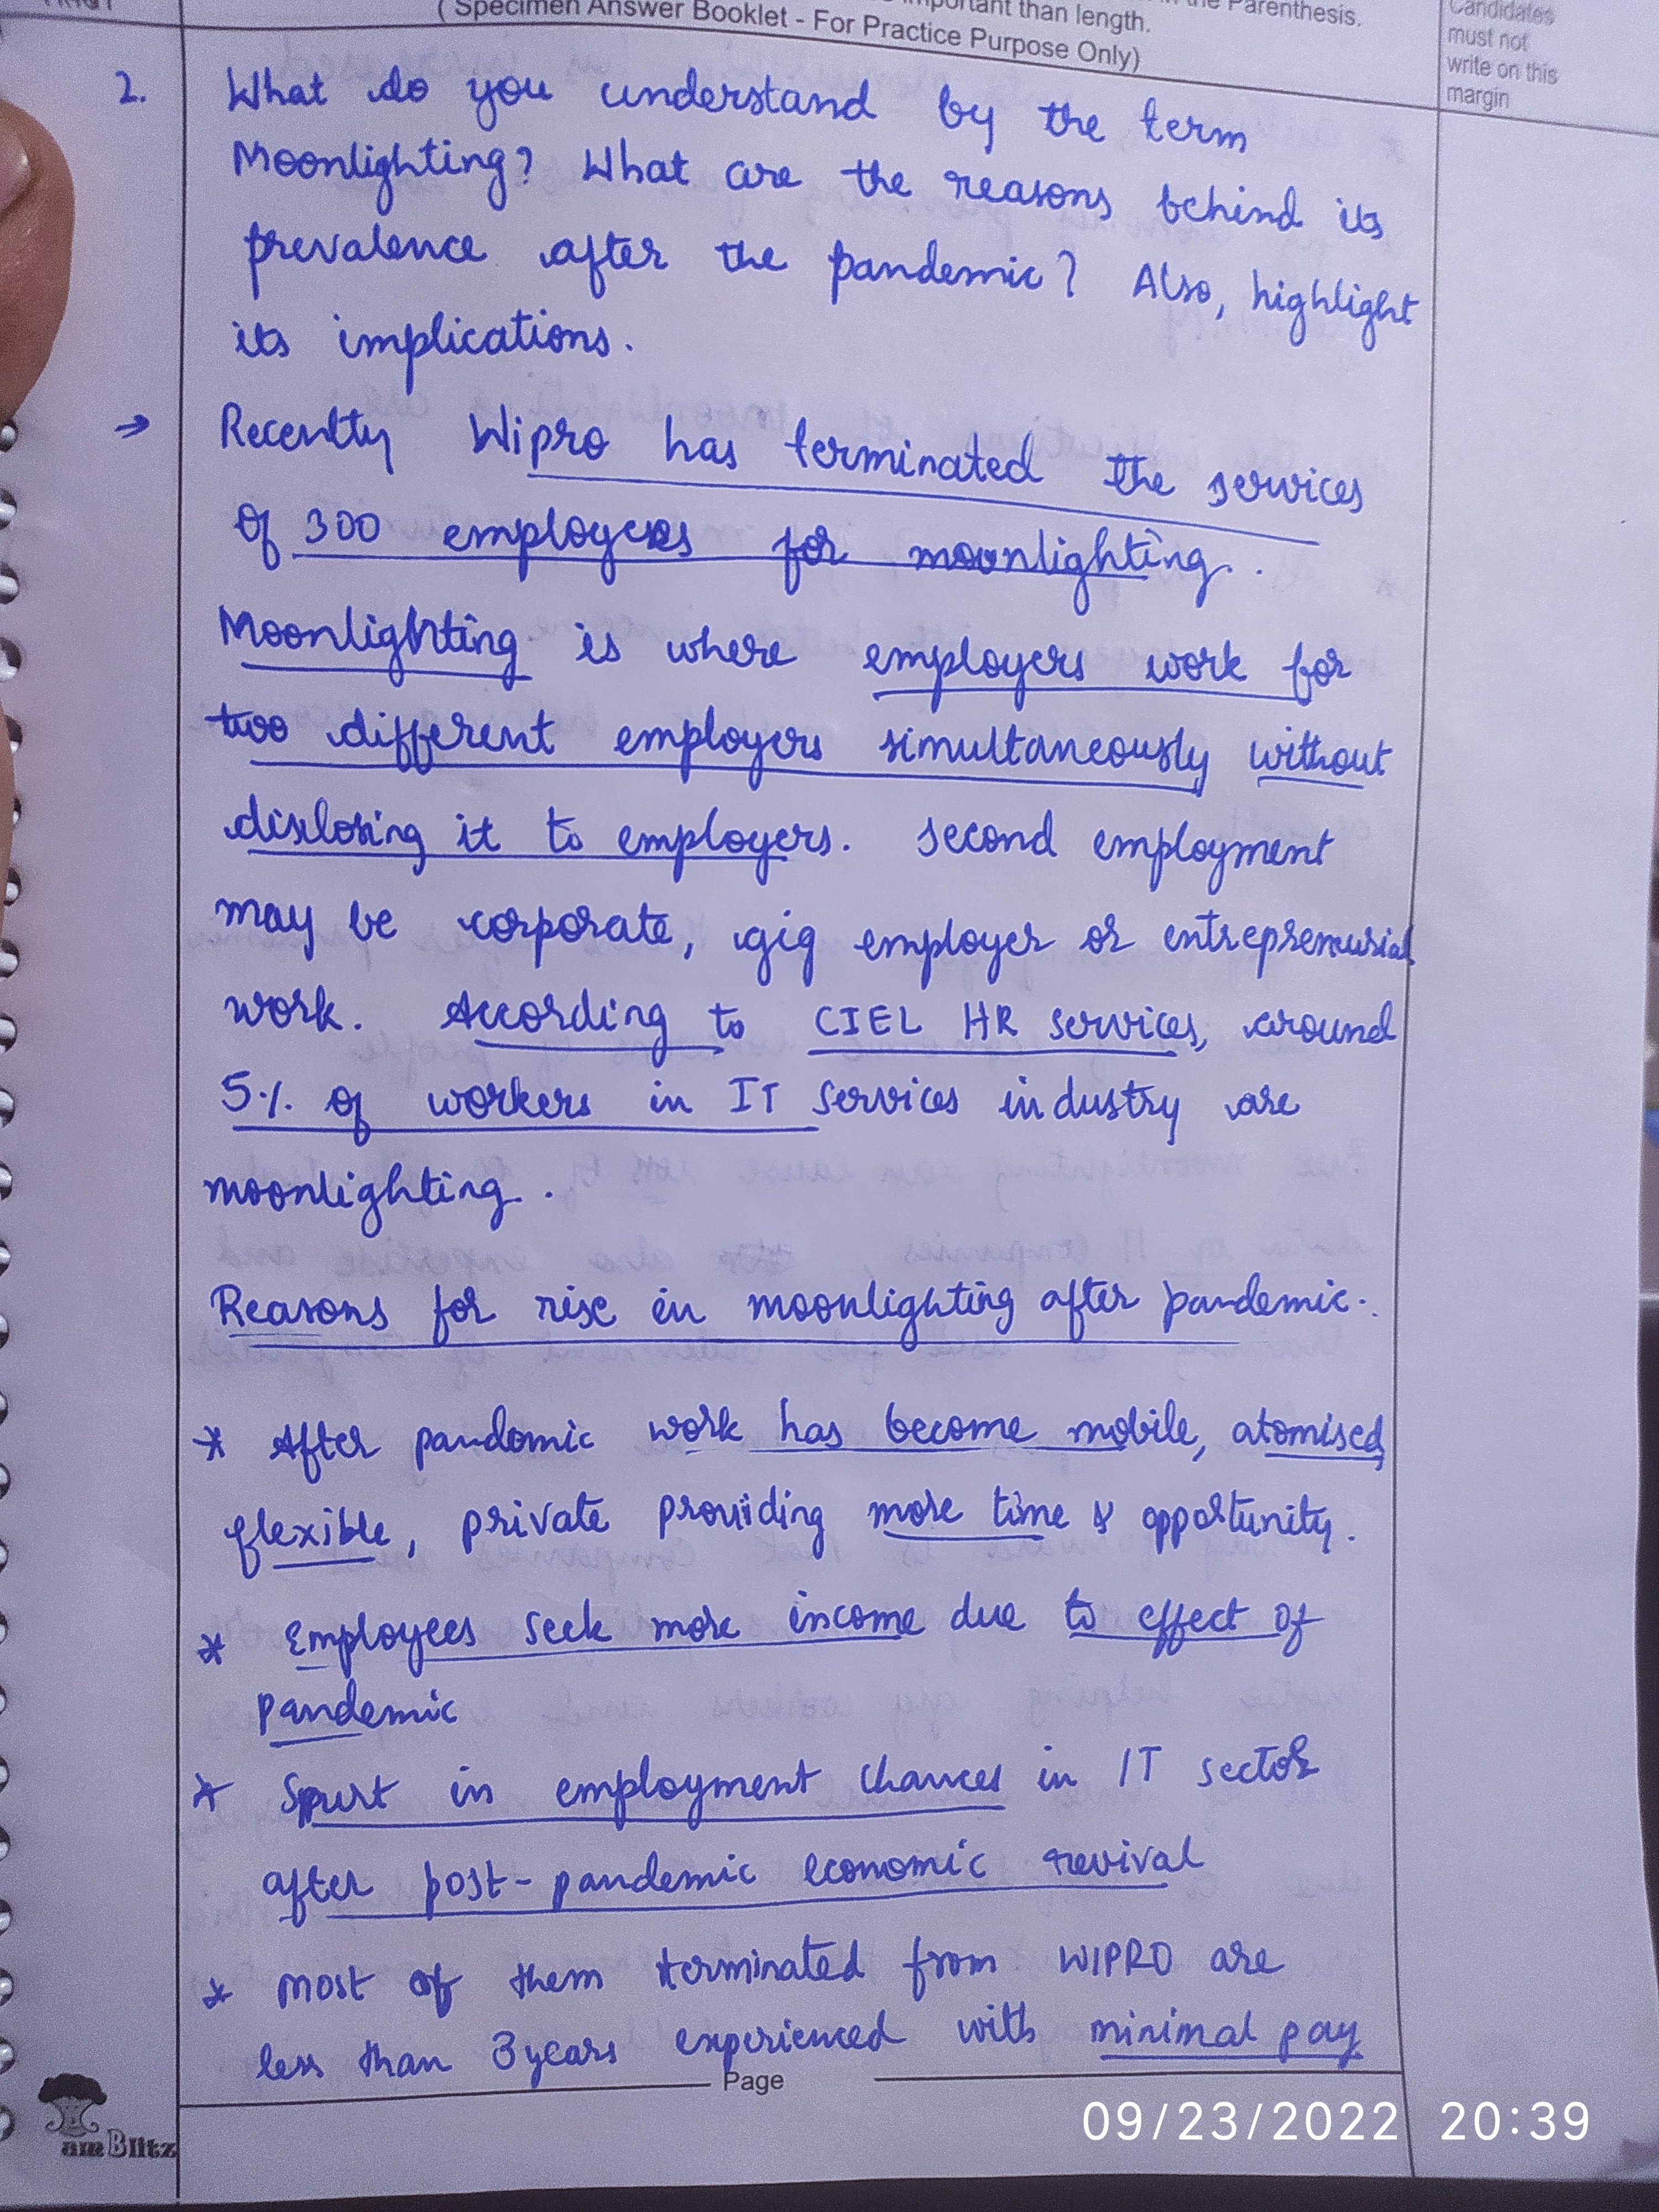 important than length.
the Parenthesis.
( Specimen Answer Booklet - For Practice Purpose Only)
Candidates
must not
write on this
margin
2. What do you understand by the term
Moonlighting? What are the reasons behind its
prevalence after the pandemic? Also, highlight
its implications.
→ Recenlty Wipro has terminated the services
of 300 employees for moonlighting..
Moonlighting is where employers work for
two different employers simultaneously without
dislosing it to employers. Second employment
may be corporate, gig employer or entrepreneurial
work. According to CIEL HR services, around
5% of workers in IT services industry are
moonlighting.
Reasons for rise in moonlighting after pandemic.
* After pandomic work has become mobile, atomised,
flexible, private providing more time & opportunity.
* Employees seek more income due to effect of
pandemic
* Spurt in employment chances in IT sector
after post-pandemic economic revival
* Most of them terminated from WIPRO are
less than 3 years experienced with minimal pay
Page
iam Blitz
09/23/2022 20:39